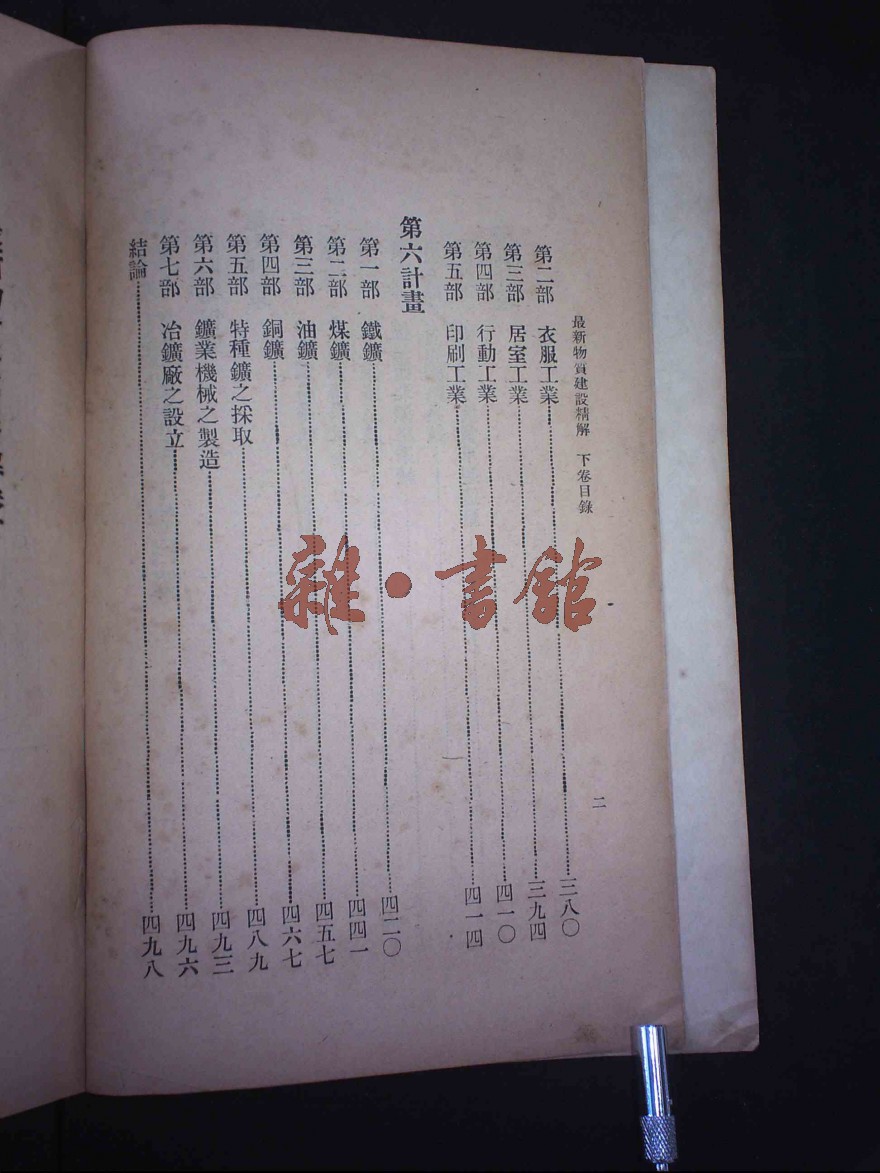 最新物質建設精解 下卷目錄
二
第二部 衣服工業 三八〇
第三部 居室工業 三九四
第四部 行動工業 四一〇
第五部 印刷工業 四一四
第六計畫
第一部 鐵鑛 四二〇
第二部 煤鑛 四四一
第三部 油鑛 四五七
第四部 銅鑛 四六七
第五部 特種鑛之採取 四八九
第六部 鑛業機械之製造 四九三
第七部 冶鑛廠之設立 四九六
結論 四九八
雜·書館